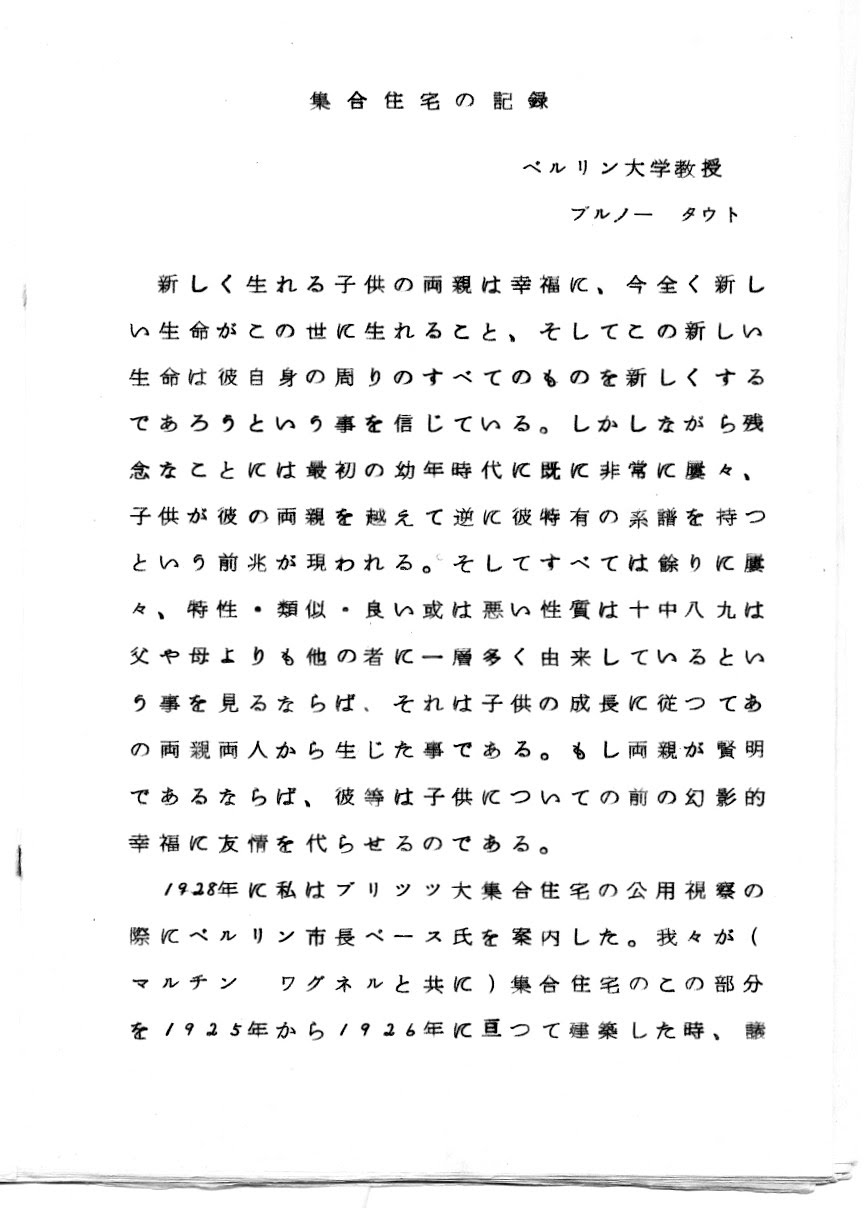 集合住宅の記録
ベルリン大学教授
ブルノー　タウト
新しく生れる子供の両親は幸福に、今全く新し
い生命がこの世に生れること、そしてこの新しい
生命は彼自身の周りのすべてのものを新しくする
であろうという事を信じている。しかしながら残
念なことには最初の幼年時代に既に非常に屢々、
子供が彼の両親を越えて逆に彼特有の系譜を持つ
という前兆が現われる。そしてすべては餘りに屢
々、特性・類似・良い或は悪い性質は十中八九は
父や母よりも他の者に一層多く由来しているとい
う事を見るならば、それは子供の成長に従つてあ
の両親両人から生じた事である。もし両親が賢明
であるならば、彼等は子供についての前の幻影的
幸福に友情を代らせるのである。
1928年に私はブリツツ大集合住宅の公用視察の
際にベルリン市長ベース氏を案内した。我々が（
マルチン　ワグネルと共に）集合住宅のこの部分
を1925年から1926年に亘つて建築した時、議